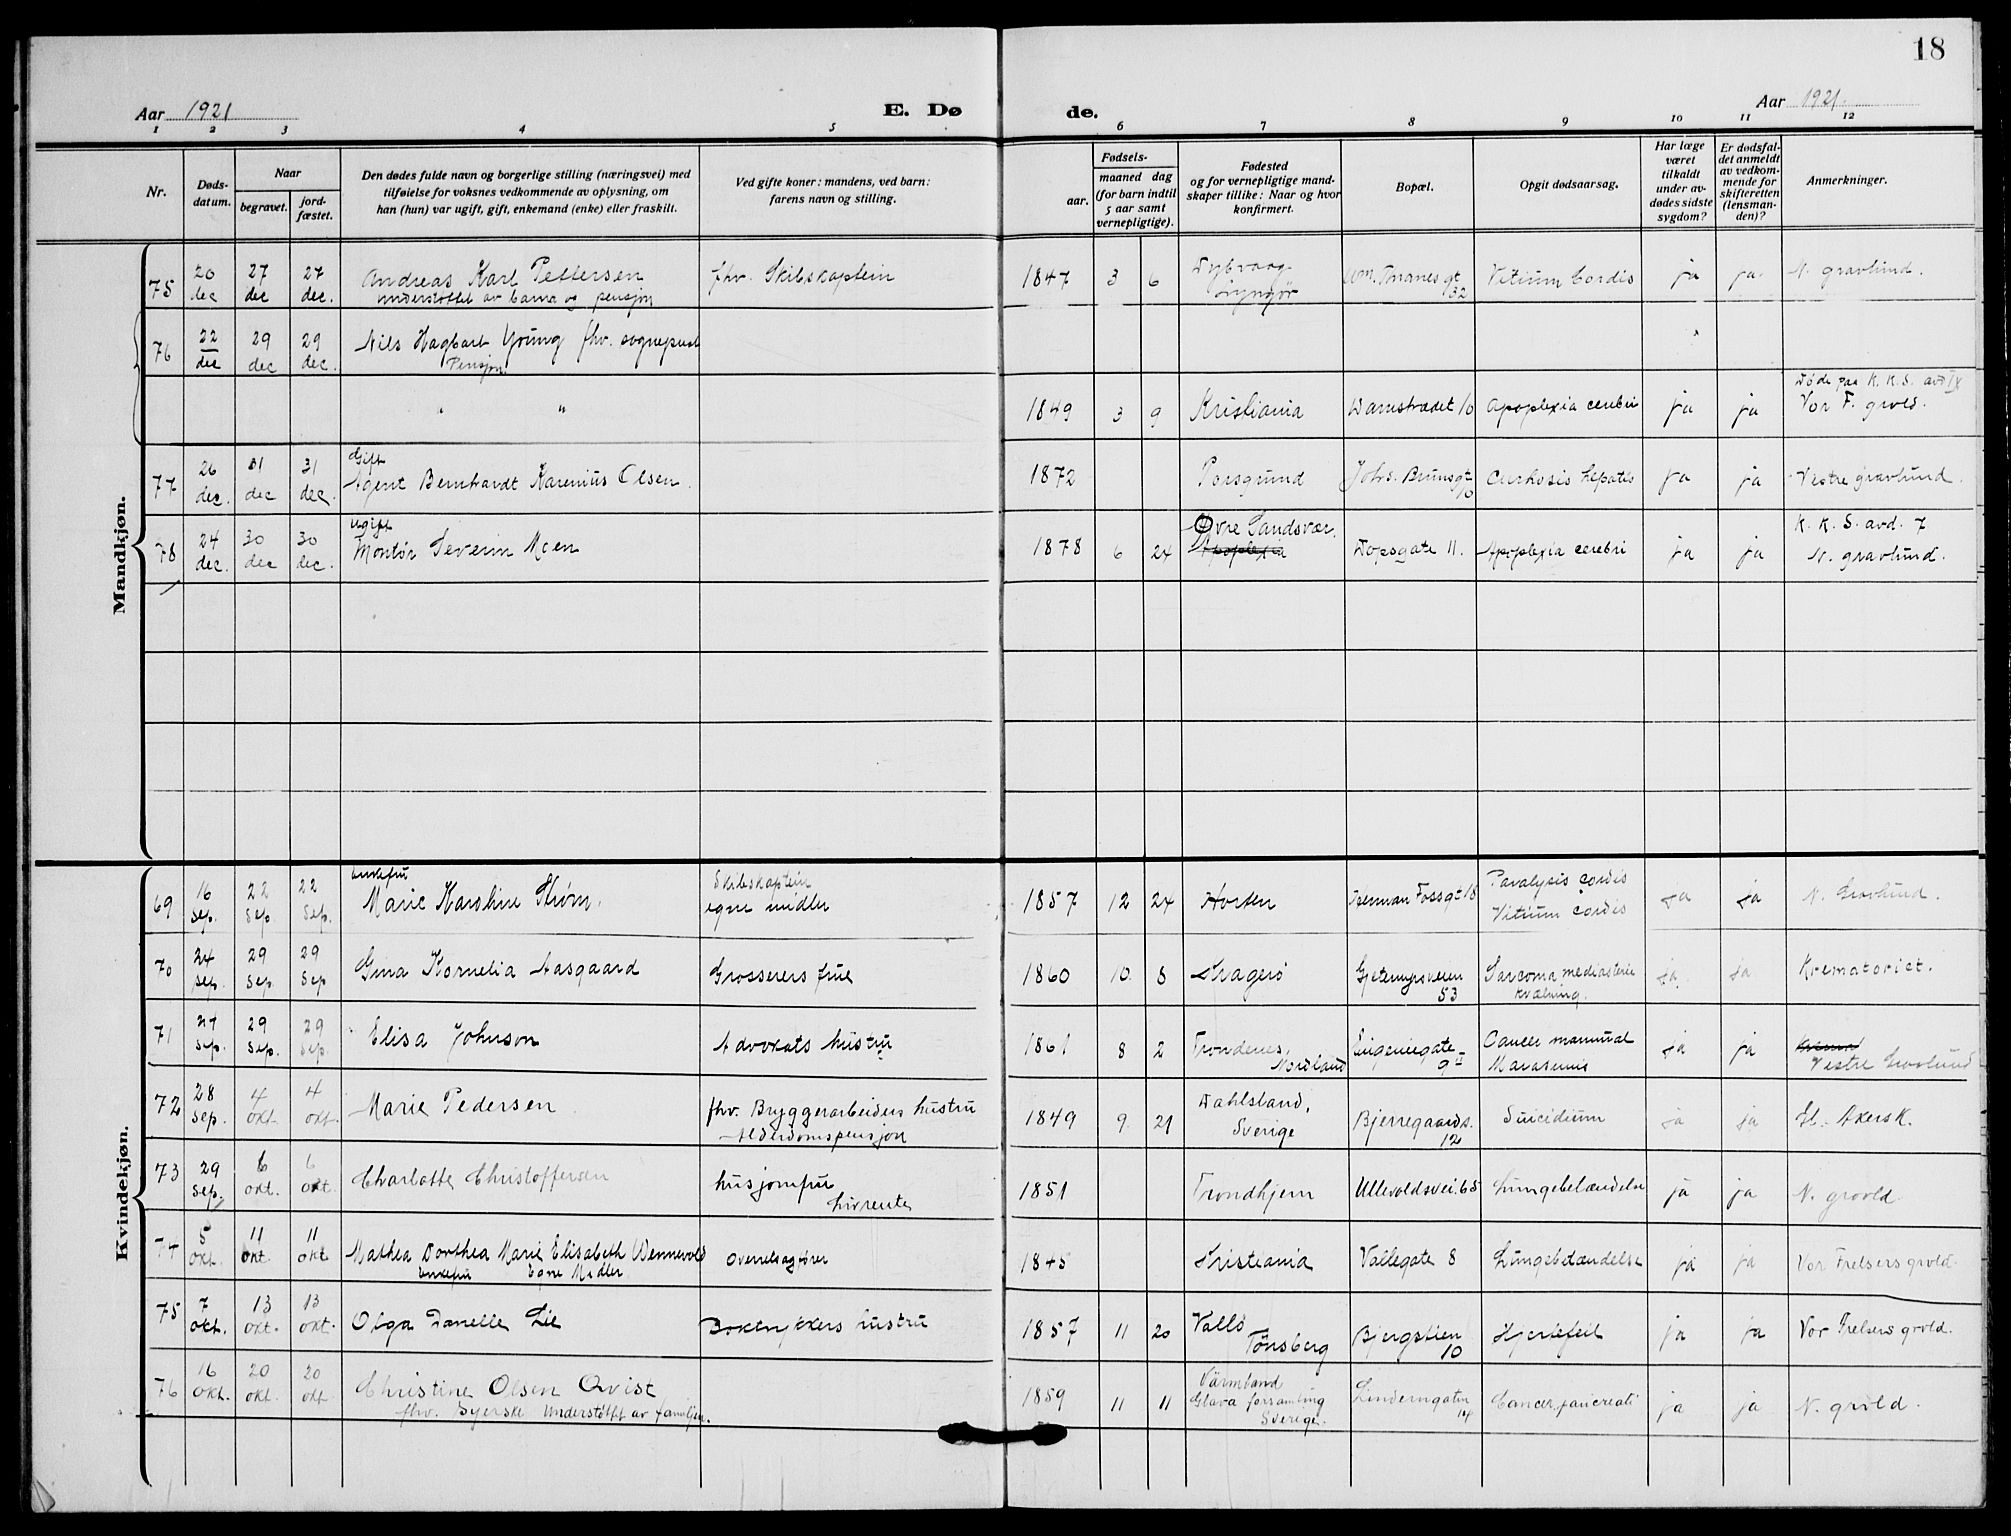 18
Aar 1921 E. Dø de. Aar 1921.
1 2 3 4 5 6 7 8 9 10 11 12
Nr.
Døds-
datum.
Naar
begravet.
jord-
fæstet.
Den dødes fulde navn og borgerlige stilling (næringsvei) med
tilføielse for voksnes vedkommende av oplysning, om
han (hun) var ugift, gift, enkemand (enke) eller fraskilt.
Ved gifte koner: mandens, ved barn:
farens navn og stilling.
Fødsels-
aar.
maaned dag
(for barn indtil
5 aar samt
vernepligtige).
Fødested
og for vernepligtige mand-
skaper tillike: Naar og hvor
konfirmert.
Bopæl.
Opgit dødsaarsag.
Har læge
været
tilkaldt
under av-
dødes sidste
sygdom?
Er dødsfal-
det anmeldt
av vedkom-
mende for
skifteretten
(lensman-
den)?
Anmerkninger.
Mandkjøn.
75 20 dec 27 dec 27 dec. Andreas Karl Pettersen fhv. Skibskaptein 1847 3 6 Dybvaag Lyngør Wm. Thranes gt 32 Vitium Cordis ja ja N. gravlund.
understøttet av barna og pensjon
76 22 dec 29 dec 29 dec. Nils Hagbart Young fhv. sogneprest
Pensjon.
" " 1849 3 9 Kristiania Damstrædet 10 Apoplexia cerebri ja ja Døde paa K. K. S. avd IX
Vor F. grvld.
77 26 dec. 31 dec 31 dec. Gift
Agent Bernhardt Karenius Olsen. 1872 Porsgrund Johs. Brunsgt 10 Cirrhosis hepatis ja ja Vestre gravlund.
78 24 dec. 30 dec 30 dec. ugift
Montør Severin Moen 1878 6 24 Øvre Sandsvær. Apoplexia Dopsgate 11. Apoplexia cerebri ja ja K. K. S. avd. 7
N. gravlund.
Kvindekjøn.
69 16 sep. 22 sep 22 sep. enkefru
Marie Karoline Strøm. Skibskaptein
egne midler 1857 12 24 Horten Herman Fossgt 18 Paralysis cordis
Vitium cordis ja ja N. Gravlund.
70 24 sep. 29 sep. 29 sep Gina Kornelia Aasgaard Grosserers frue 1860 10 8 Kragerø Gjetemyrsveien 53 Sarcoma
kvælning. ja ja Krematoriet.
71 27 sep. 29 sep. 29 sep. Elisa Johnson Advokats hustru 1861 8 2 Trondenes, Nordland Eugeniegate 9 Cancer mammae
Marasmus ja ja
Vestre Gravlund
72 28 sep. 4 okt. 4 okt. Marie Pedersen fhv. Bryggerarbeiders hustru
Alderdomspensjon 1849 9 21 Dahlsland, Sverige Bjerregaards. 12 Suicidium ja ja Gl. Akersk.
73 29 sep. 6 okt. 6 okt. Charlotte Christoffersen husjomfru
Livrente 1851 Trondhjem Ullevoldsvei. 65 Lungebetændelse ja ja N. grvld.
74 5 okt. 11 okt. 11 okt Mathea Dorthea Marie Elisabeth Wennevold overretssagfører 1845 Kristiania Vallegate 8 Lungebetændelse ja ja Vor Frelsers grvld.
enkefru Egne Midler
75 7 okt. 13 okt. 13 okt. Olga Lie Boktrykkers hustru 1857 11 20 Vallø Tønsberg Bjergstien 10 Hjertefeil ja ja Vor Frelsers grvld.
76 16 okt. 20 okt. 20 okt Christine Olsen Qvist 1859 11 11 Värmland
Glava forsamling
Sverige. Linderngaten 14 Cancer pancreati ja ja N. grvld.
fhv. Syerske Understøttet av familjen.